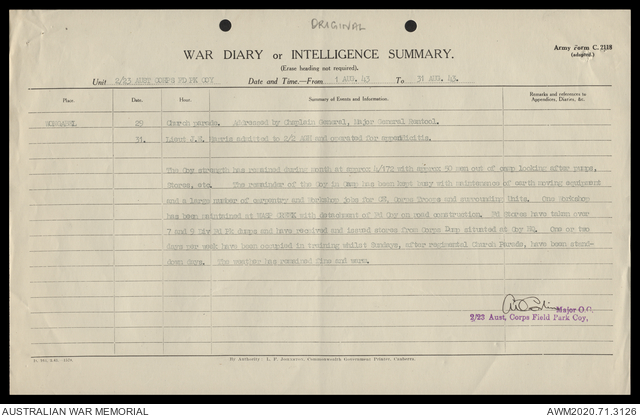 ORIGINAL
WAR DIARY or INTELLIGENCE SUMMARY.
Army Form C. 2118
(adapted.)
(Erase heading not required).
Unit 2/23 AUST CORPS FD PK COY Date and Time.—From 1 AUG. 43 To 31 AUG. 43.
Place Date. Hour. Summary of Events and Information. Remarks and references to Appendices, Diaries, &c.
29 Church parade. Addressed by Chaplain General, Major General
31. Lieut J. admitted to 2/2 AGH and operated for appendicitis.
The Coy strength has remained during month at approx 4/172 with approx 50 men out of camp looking after pumps,
Stores, etc. The remainder of the Coy in Camp has been kept busy with maintenance of earth moving equipment
and a large number of carpentry and Workshop jobs for CE, Corps Troops and surrounding Units. One Workshop
has been maintained at with detachment of Fd Coy on road construction. Fd Stores have taken over
7 and 9 Div Fd Pk dumps and have received and issued stores from Corps Dump situated at Coy HQ. One or two
days per week have been occupied in training whilst Sundays, after regimental Church Parade, have been stand-
down days. The weather has remained fine and warm.
Major O.C.
2/23 Aust. Corps Field Park Coy,
By Authority: L. F. Johnston, Commonwealth Government Printer, Canberra.
AUSTRALIAN WAR MEMORIAL AWM2020.71.3126